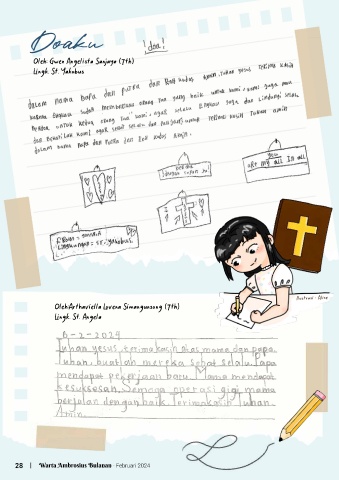 Doaku
!doa!
Oleh Gwen Angelista Sanjaya (7th)
Lingk. St. Yakobus
dalam nama bapa dan putra dan Roh kudus Amin. Tuhan yesus terima kasih
karena engkau sudah memberikan orang tua yang baik untuk kami
berdoa untuk kedua orang tua kami, agar selalu engkau jaga dan lindungi
dan berkatilah kami agar sehat selalu dan panjang umur. Terima kasih Tuhan amin
dalam nama bapa dan Putra dan Roh kudus Amin.
you
are my all in all
Lingkungan = ST. yakobus
Oleh Arthaviella Lovena Simangunsong (7th)
Lingk. St. Angela
6-2-2024
Tuhan yesus, terimakasih atas mama dan papa.
Tuhan, buatlah mereka sehat selalu. Papa
mendapat pekerjaan baru. Mama mendapat
kesuksesan. Semoga operasi gigi mama
berjalan dengan baik. Terimakasih Tuhan.
Amin
28 | Warta Ambrosius Bulanan Februari 2024